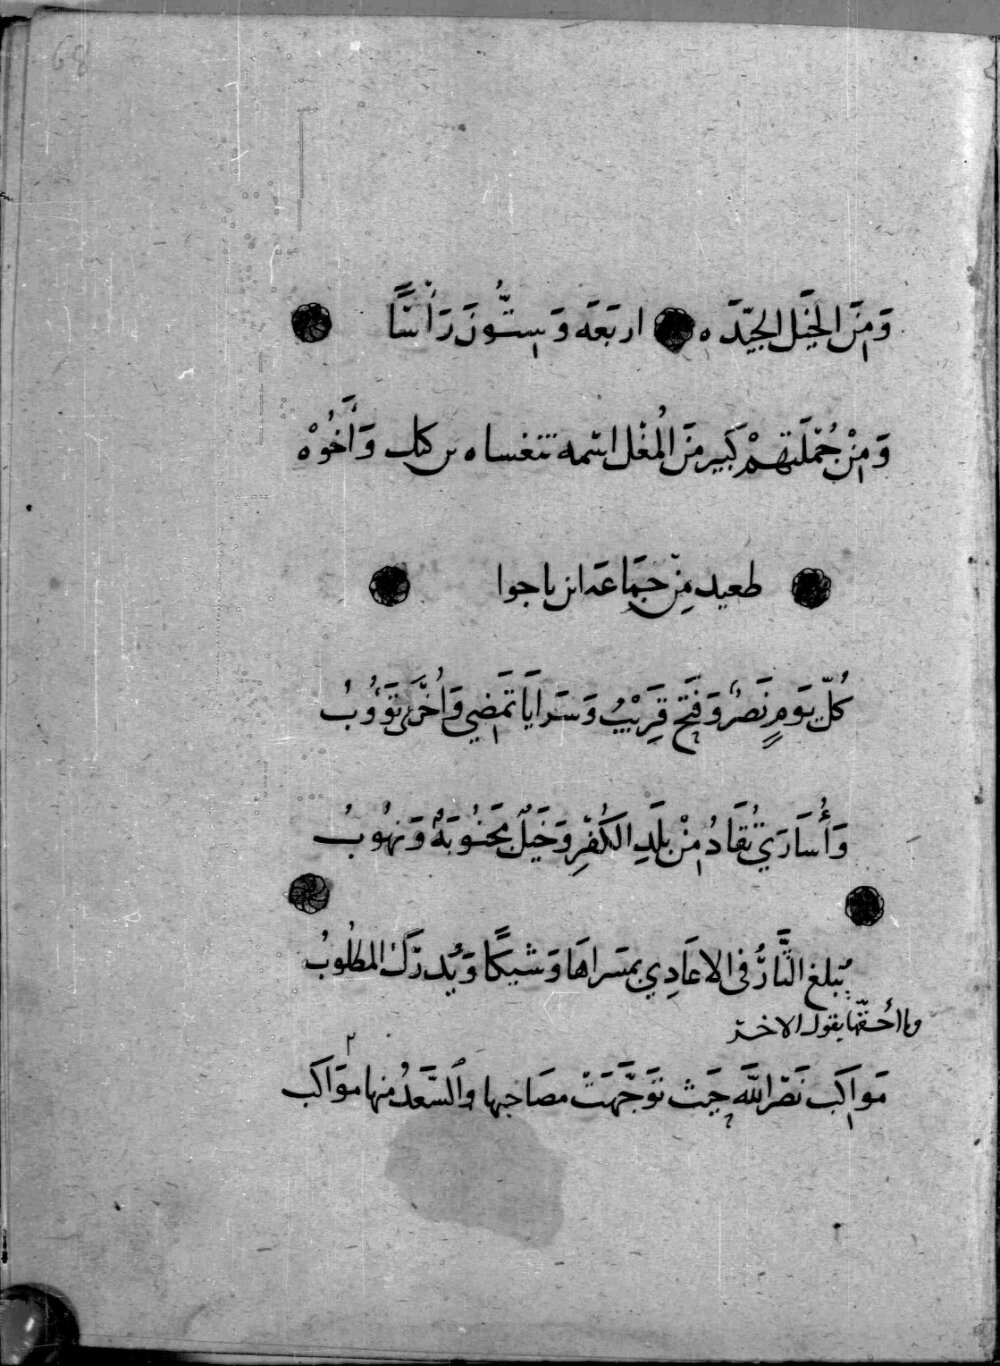 68
وَمِنَ الخَيْل الجيّدَه اربَعَه وَسِتُّونَ رَأْسًا
وَمِنْ جُمْلَتِهِمْ كَبير مِنَ المُغْل اسْمه تتغساه بن كتك وَأَخُوْهُ
طعيد مِنْ جَمَاعَة ابن باجوا
كُلّ يَوْمٍ نَصْرٌ وَفَتْحٌ قَرِيْبٌ وَسَرايَا تَمْضِي وَأُخْرَى تَؤُوْبُ
وَأُسَارَي تُقَادُ مِنْ بَلَدِ الكُفْرِ وَخَيْلٌ مَجْنُوبَةٌ وَنهُوبُ
يُبلغ الثَّارُ فى الاعَادِي بمَسراهَا وَشيكًا وَيُدرَك المطلُوبُ
وما أحقّها بقول الاخر
مَوَاكب نَصْر اللَّه حَيْث تَوَجَّهَتْ مصَاحبها وَالسَّعْدُ منها موَاكب